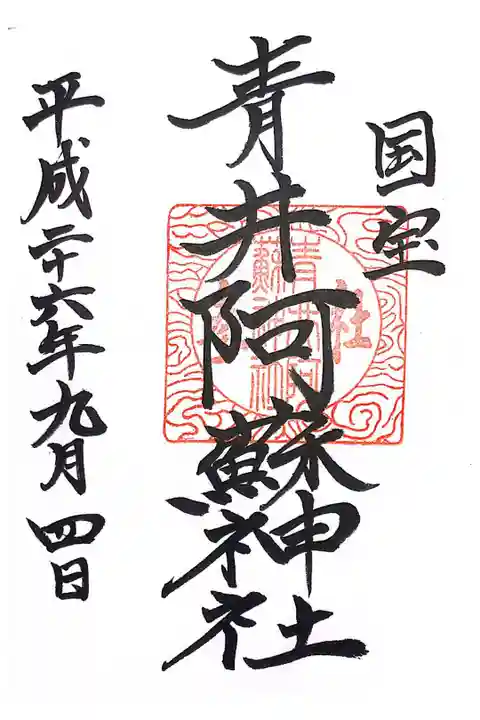 国宝
青井阿蘇神社
平成二十六年九月四日